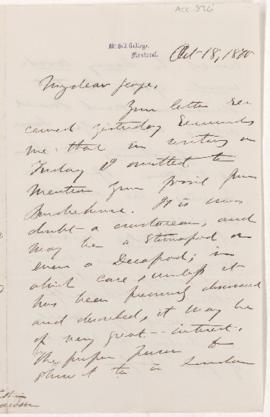 Acc. 826
McGill College,
Montreal.
Oct 18, 1880
My dear George,
Your letter re-
ceived yesterday reminds
me that in writing on
Friday I omitted to
mention your fossil from
It is no
doubt a crustacean, and
may be a Stomapod or
even a Decapod; in
which case, unless it
has been previously discovered
and described, it may be
of very great interest.
The proper person to
show it to in London